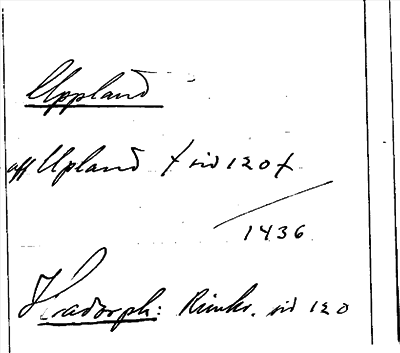 Uppland
aff Upland / sid 120 /
1436
Hadorph: Rimkr. sid 120